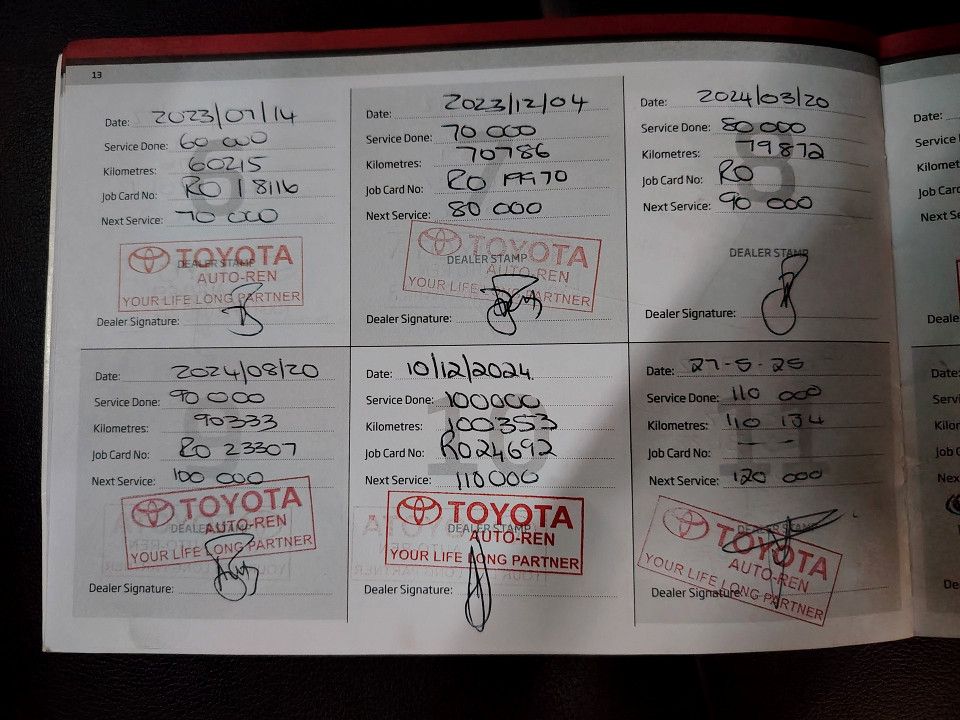 13
Date: 2023/07/14
Service Done: 60 000
Kilometres: 60215
Job Card No: RO 18116
Next Service: 70 000
6
TOYOTA
DEALER STAMP
AUTO-REN
YOUR LIFE LONG PARTNER
Dealer Signature:
Date: 2023/12/04
Service Done: 70 000
Kilometres: 70786
Job Card No: RO 19970
Next Service: 80 000
7
TOYOTA
DEALER STAMP
AUTO-REN
YOUR LIFE LONG PARTNER
Dealer Signature:
Date: 2024/03/20
Service Done: 80 000
Kilometres: 79872
Job Card No: RO
Next Service: 90 000
8
DEALER STAMP
Dealer Signature:
Date: 2024/08/20
Service Done: 90 000
Kilometres: 90333
Job Card No: RO 23307
Next Service: 100 000
9
TOYOTA
DEALER STAMP
AUTO-REN
YOUR LIFE LONG PARTNER
Dealer Signature:
Date: 10/12/2024.
Service Done: 100000
Kilometres: 100353
Job Card No: RO24692
Next Service: 110000
10
TOYOTA
DEALER STAMP
AUTO-REN
YOUR LIFE LONG PARTNER
Dealer Signature:
Date: 27-5-25
Service Done: 110 000
Kilometres: 110 134
Job Card No: - -
Next Service: 120 000
11
TOYOTA
DEALER STAMP
AUTO-REN
YOUR LIFE LONG PARTNER
Dealer Signature:
Date:
Service
Kilomet
Job Car
Next S
Deale
Date:
Servic
Kilon
Job C
Next
De